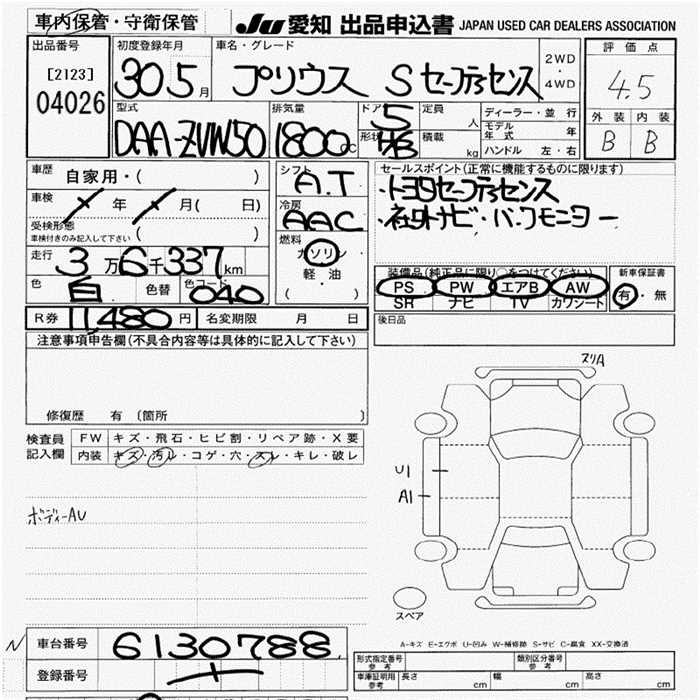 車内保管・守衛保管 JU 愛知 出品申込書 JAPAN USED CAR DEALERS ASSOCIATION
出品番号 [2123] 04026
初度登録年月 30 5月
車名・グレード プリウス S セーフティセンス
2WD・4WD
評価点 4.5
外装 内装
B B
型式 DAA-ZVW50
排気量 1800cc
ドア 5
形状 HB
定員 人
積載 kg
ディーラー・並行
モデル年式 年
ハンドル 左・右
車歴 自家用・( )
車検 年 月( 日)
受検形態 車検付きのみ記入して下さい ( )
走行 3万6千337km
色 白 色替 色コード 040
シフト A.T
冷房 AAC
燃料 ガソリン
軽・油
( )
セールスポイント(正常に機能するものに限ります)
・トヨタセーフティセンス
・社外ナビ・バックモニター
装備品(純正品に限り○をつけてください)
PS PW エアB AW
SR ナビ TV カワシート
新車保証書
有・無
R券 11,480円 名変期限 月 日
後日品
注意事項申告欄(不具合内容等は具体的に記入して下さい)
修復歴 有 (箇所 )
検査員記入欄 FW キズ・飛石・ヒビ割・リペア跡・X要
内装 キズ・汚ル・コゲ・穴・スレ・キレ・破レ
ボディーAU
スリA
U1
A1
スペア
A-キズ E-エクボ U-凹み W-補修跡 S-サビ C-腐食 XX-交換済
N 車台番号 6130788
登録番号
形式指定番号 参考 類別区分番号 参考
車庫証明用 参考 長さ cm 幅 cm 高さ cm